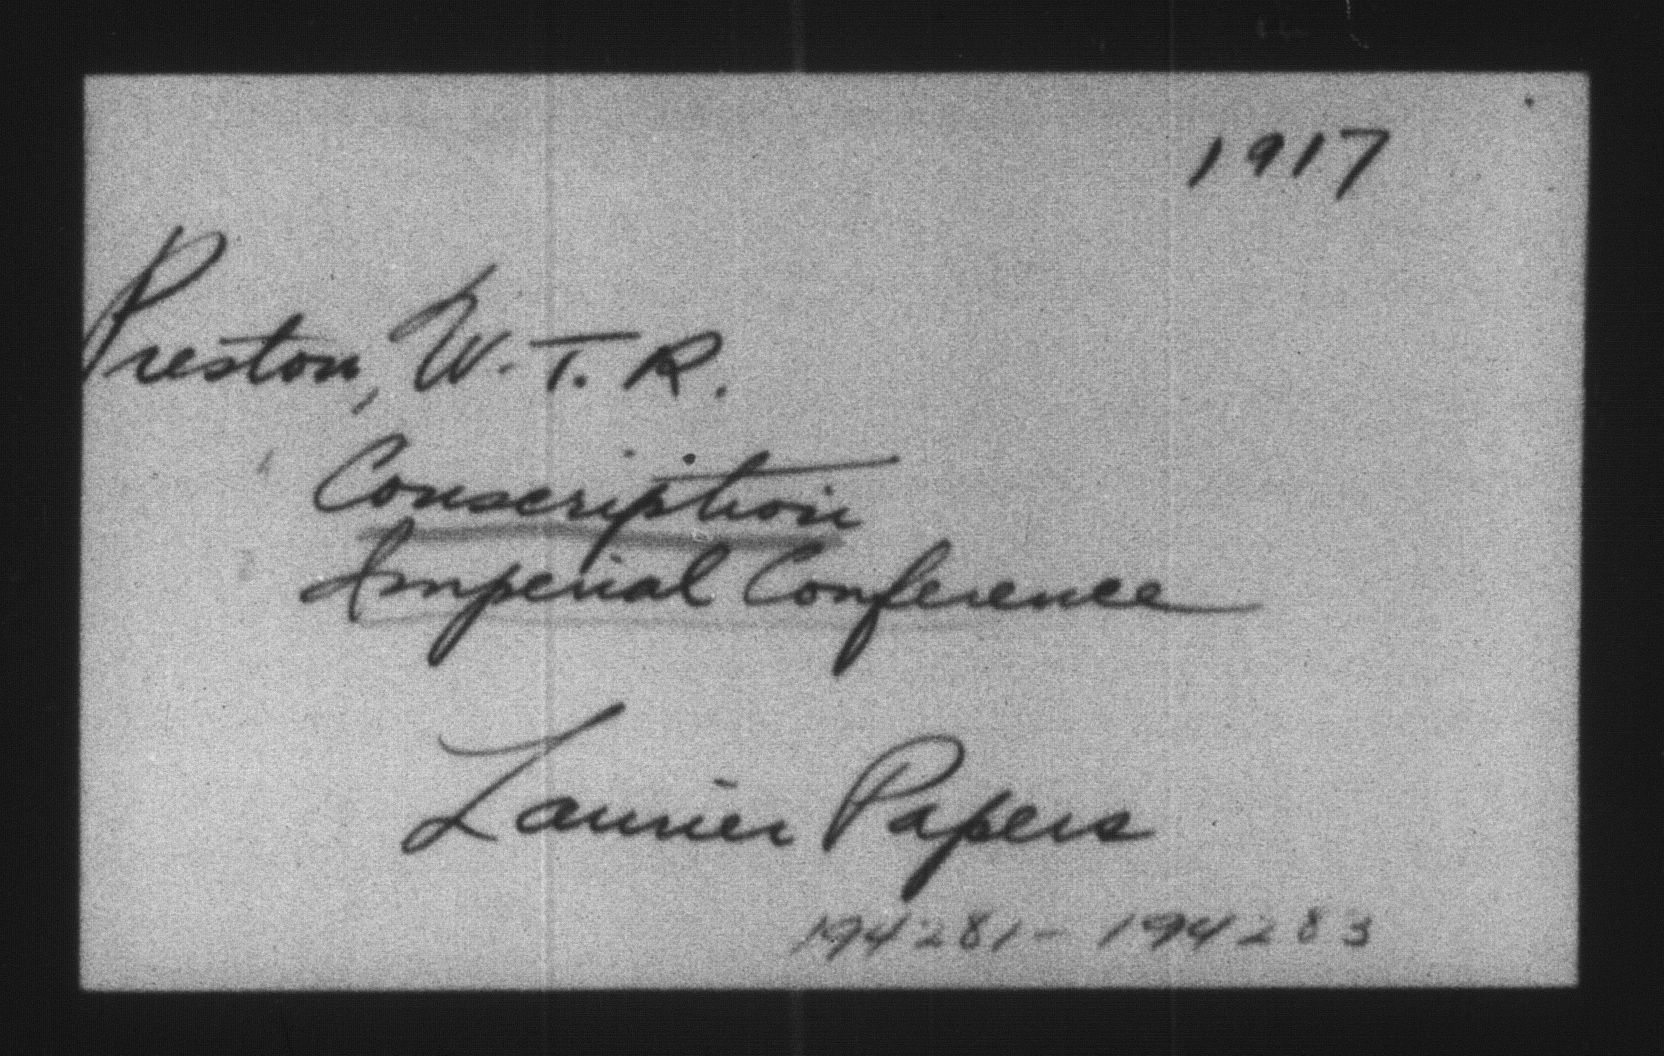 1917
Preston, W. T. R.
Conscription
Imperial Conference
Laurier Papers
194281 - 194283